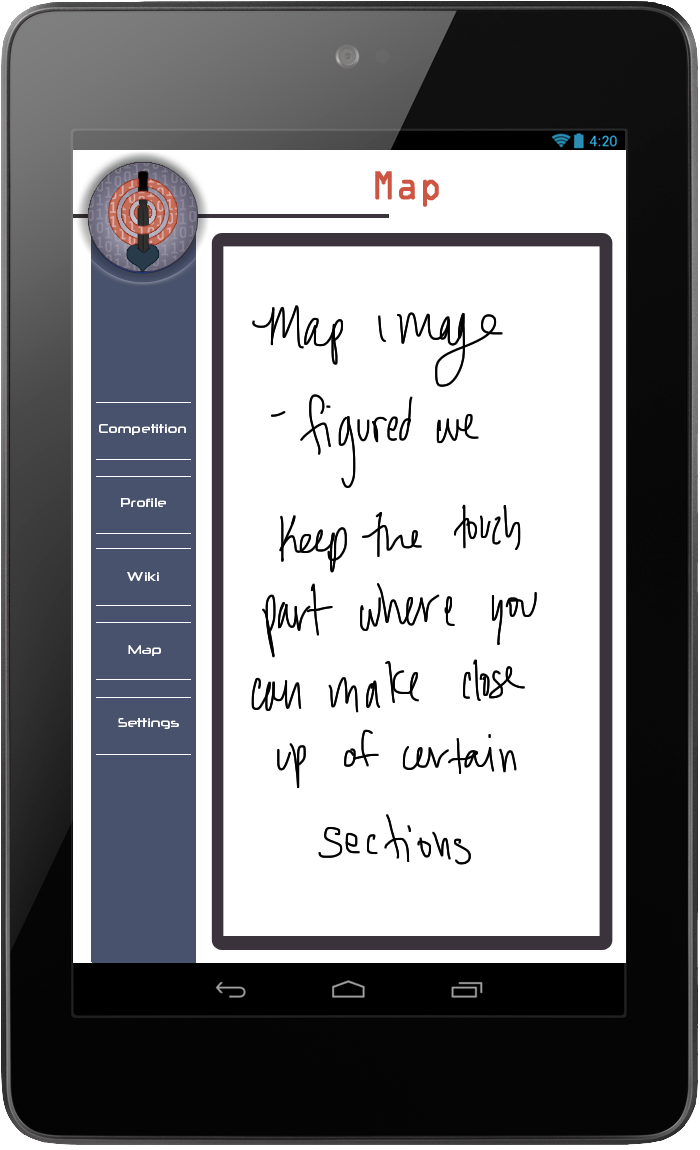 4:20
Map
Competition
Profile
Wiki
Map
Settings
Map image
- figured we
keep the touch
part where you
can make close
up of certain
sections